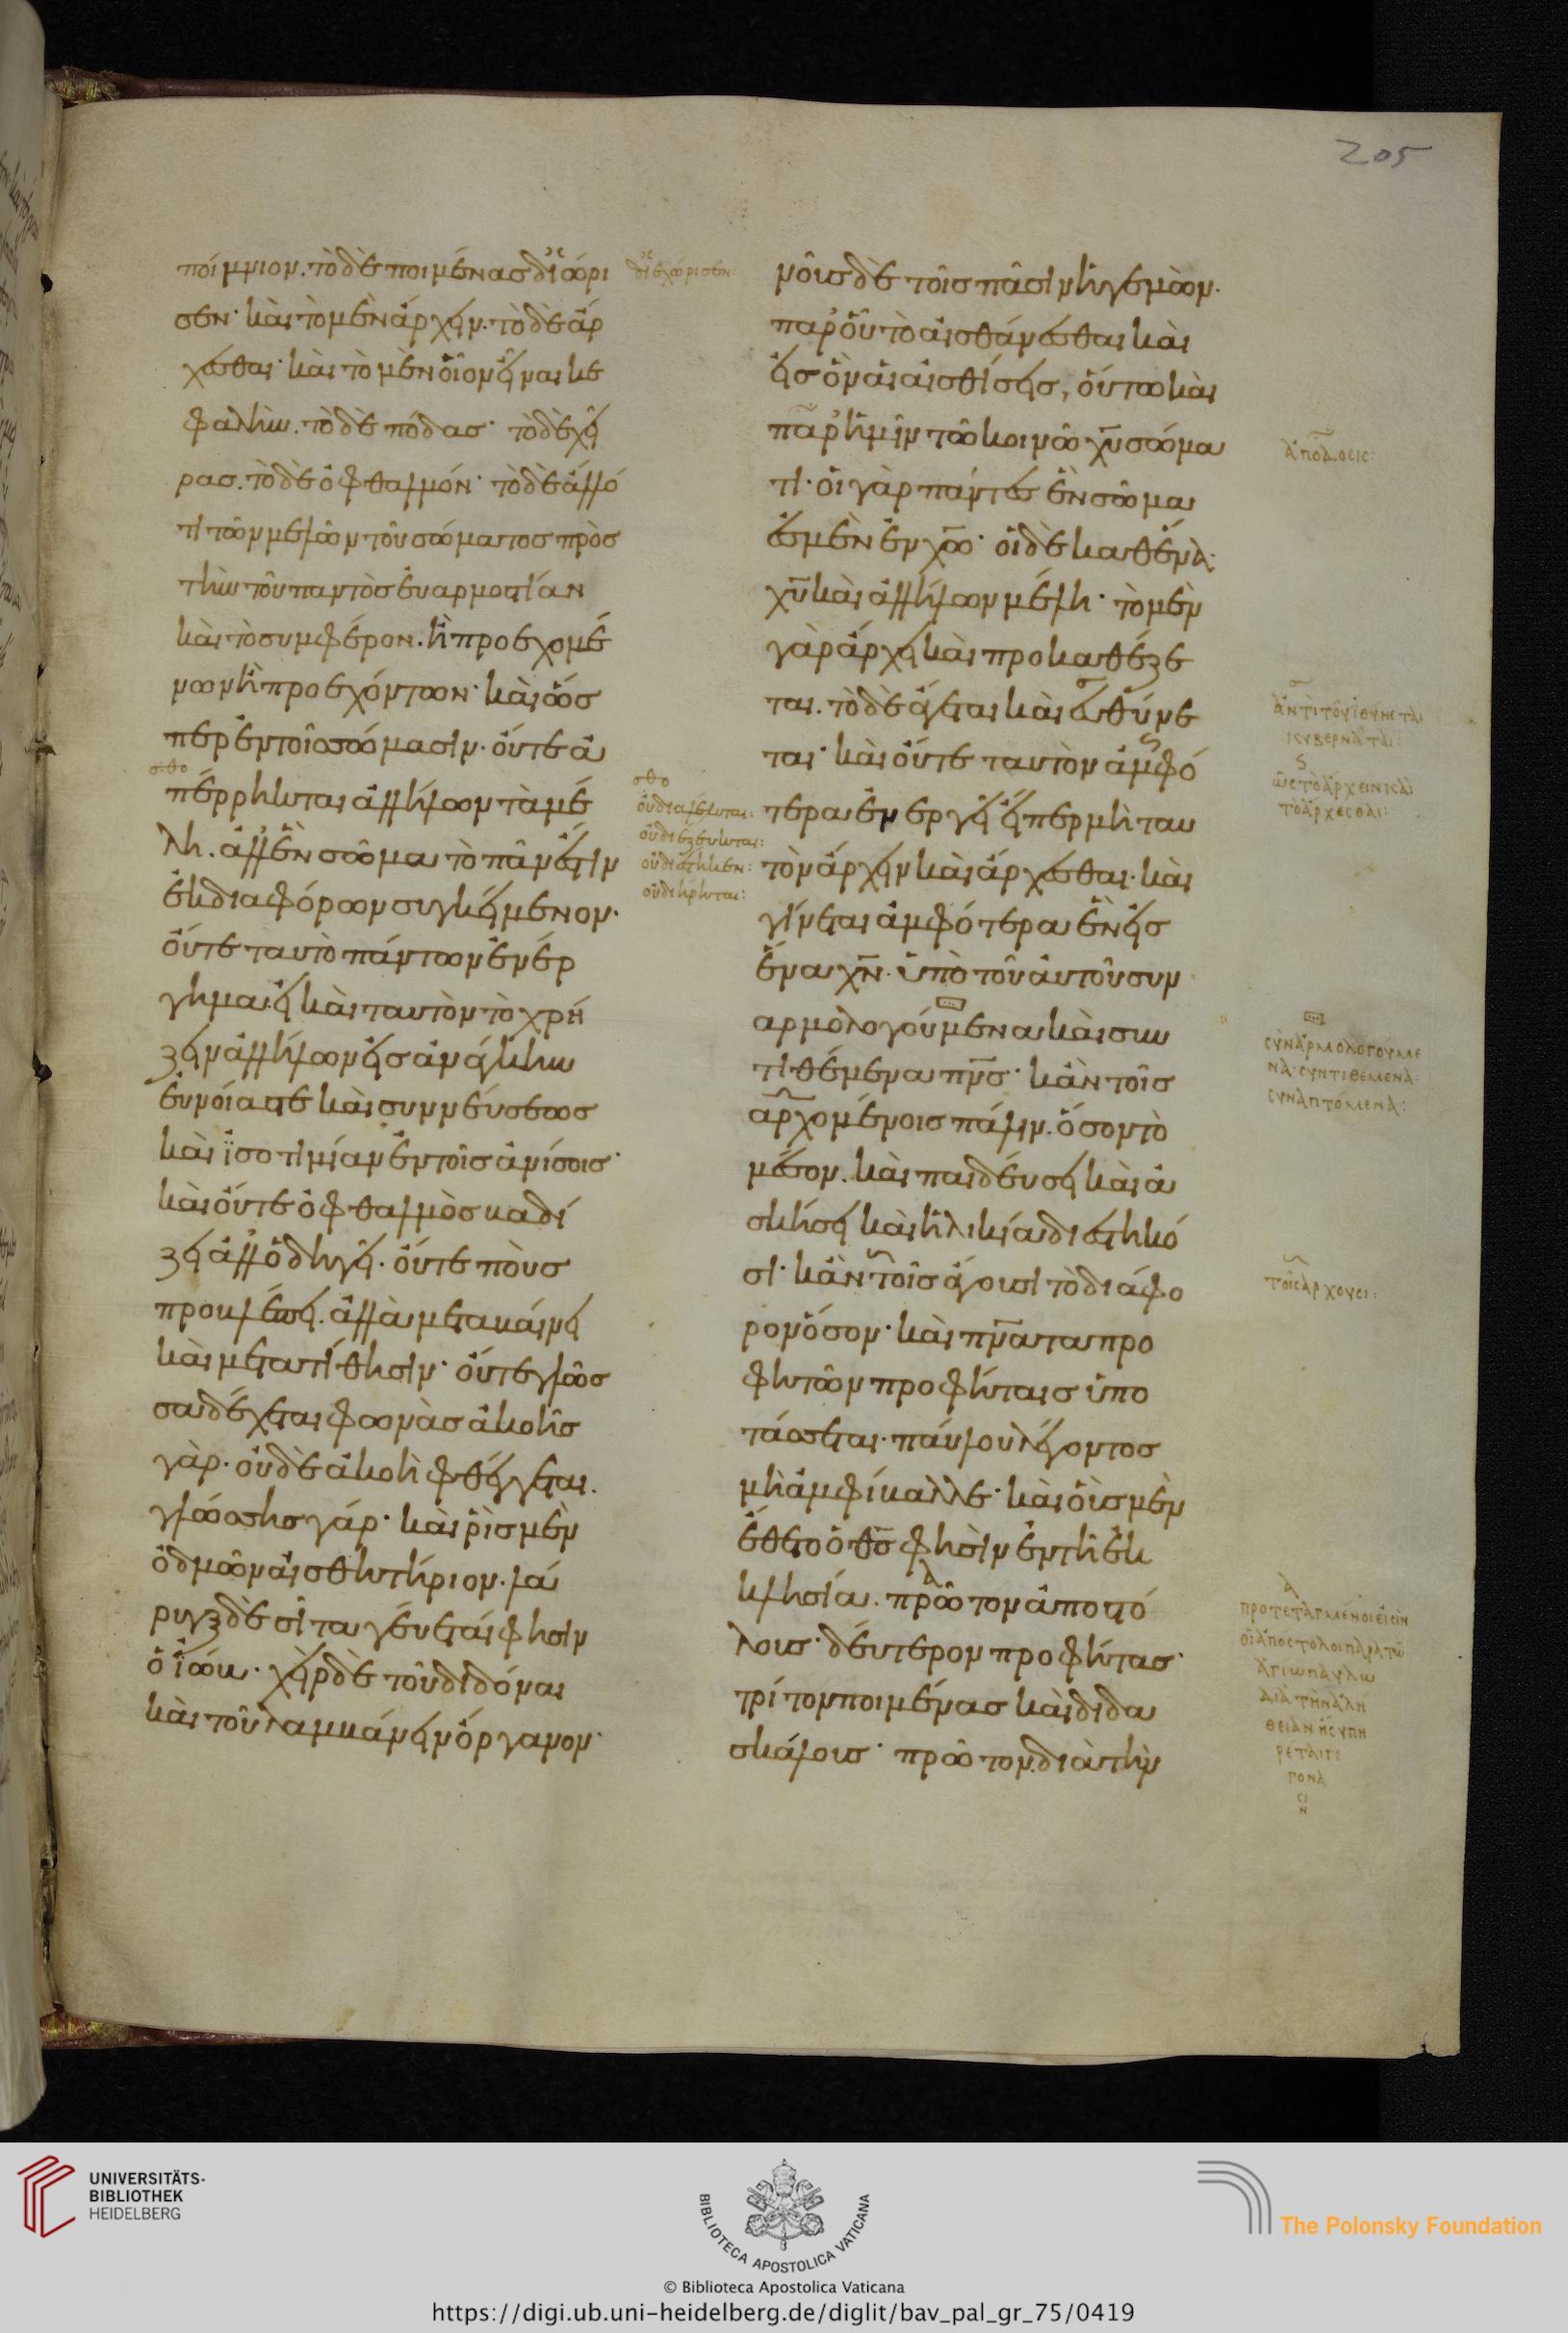 205
ποίμνιον. τὸ δὲ ποιμένας διώρι
σεν· καὶ τὸ μὲν ἄρχειν. τὸ δὲ ἄρ
χεσθαι· καὶ τὸ μὲν οἷον εἶναι κε
φαλὴν. τὸ δὲ πόδας· τὸ δὲ χεῖ
ρας. τὸ δὲ ὀφθαλμόν· τὸ δὲ ἄλλό
τι τῶν μελῶν τοῦ σώματος πρὸς
τὴν τοῦ παντὸς εὐαρμοστίαν
καὶ τὸ συμφέρον. ἢ προεχομέ
νων ἢ προεχόντων· καὶ ὥσ
περ ἐν τοῖς σώμασιν. οὔτε ἀ
πέρρηκται ἀλλήλων τὰ μέ
λη. ἀλλ' ἓν σῶμα τὸ πᾶν ἐστὶν
ἐκ διαφόρων συγκείμενον.
οὔτε ταυτὸ πάντων ἐνέρ
γημα. εἰ καὶ ταυτὸν τὸ χρῄ
ζειν ἀλλήλων εἰς ἀναγκην
εὐνοίας τε καὶ συμνεύσεως
καὶ ἰσοτιμίαν ἐν τοῖς ἀνίσοις·
καὶ οὔτε ὀφθαλμὸς βαδί
ζει ἀλλ' ὁδηγεῖ. οὔτε ποὺς
προβλέπει. ἀλλὰ μεταβαίνει
καὶ μετατίθησιν· οὔτε γλῶσ
σα δέχεται φωνὰς ἀκοῆς
γὰρ. οὐδὲ ἀκοὴ φθέγγεται.
γλώσσης γάρ· καὶ ῥὶς μὲν
ὀδμῶν αἰσθητήριον. λά
ρυγξ δὲ σῖτα γεύεται φησὶν
ὁ ἰώβ. χεὶρ δὲ τοῦ διδόναι
καὶ τοῦ λαμβάνειν ὄργανον·
διεχώρισεν
οὐ διαλέλυται:
οὐ διέζευκται:
οὐ διέστηκεν:
οὐ διῄρηται:
νοῦς δὲ τοῖς πᾶσιν ἡγεμὼν.
παρ' οὗ τὸ αἰσθάνεσθαι καὶ
εἰς ὃν αἱ αἰσθήσεις, οὕτω καὶ
παρ' ἡμῖν τῷ κοινῷ χυ σώμα
τι. οἱ γὰρ πάντες ἓν σῶμα
ἐσμὲν ἐν χω· οἱ δὲ καθένα
χυ καὶ ἀλλήλων μέλη· τὸ μὲν
γὰρ ἄρχει καὶ προκαθέζε
ται. τὸ δὲ ἄγεται καὶ εὐθύνε
ται· καὶ οὔτε ταυτὸν ἀμφό
τερα ἐνεργεῖ εἴπερ μὴ ταυ
τὸν ἄρχειν καὶ ἄρχεσθαι. καὶ
γίνεται ἀμφότερα ἓν εἰς
ἕνα χν. ὑπὸ τοῦ αὐτοῦ συν
αρμολογούμενα καὶ συν
τιθέμενα πνς· κἂν τοῖς
ἀρχομένοις πάλιν. ὅσον τὸ
μέσον. καὶ παιδεύσει καὶ ἀ
σκήσει καὶ ἡλικίᾳ διεστηκό
σι· κἂν τοῖς ἄγουσι τὸ διάφο
ρον ὅσον· καὶ πνατα προ
φητῶν προφήταις ὑπο
τάσσεται. παύλου λέγοντος
μὴ ἀμφίβαλλε· καὶ οὓς μὲν
ἔθετο ὁ θς φησὶν ἐν τῇ ἐκ
κλησία. πρῶτον ἀποστό
λους· δεύτερον προφήτας·
τρίτον ποιμένας καὶ διδα
σκάλους· πρῶτον. διὰ τὴν
ἀπόδοσις:
ἀντὶ τοῦ ἰθύνεται
κυβερνᾶται:
ὡς τὸ ἄρχειν καὶ
τὸ ἄρχεσθαι:
συναρμολογούμε
να. συντιθέμενα.
συναπτόμενα:
τοῖς ἄρχουσι:
προτεταγμένοι εἰσὶν
οἱ ἀπόστολοι παρὰ τῶ
ἁγίω παύλω
διὰ τὴν ἀλή
θειαν ἧς ὑπη
ρέται γε
γόνα
σι
ν
UNIVERSITÄTS-
BIBLIOTHEK
HEIDELBERG
BIBLIOTECA APOSTOLICA VATICANA
The Polonsky Foundation
© Biblioteca Apostolica Vaticana
https://digi.ub.uni-heidelberg.de/diglit/bav_pal_gr_75/0419